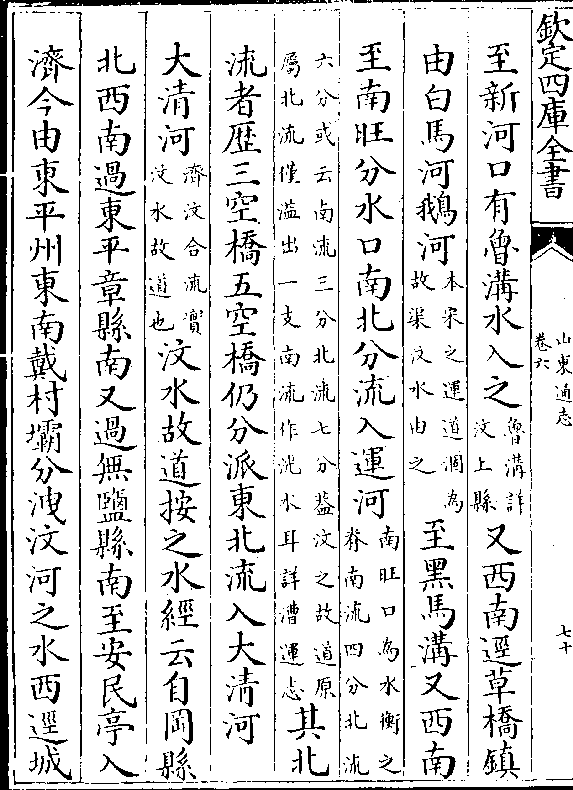 欽定四庫全書
山東通志
卷六
七十
至新河口有魯溝水入之魯溝詳汶上縣又西南逕草橋鎮
由白馬河鵝河本宋之運道涸為故渠汶水由之至黑馬溝又西南
至南旺分水口南北分流入運河南旺口為水衡之脊南流四分北流
六分或云南流三分北流七分葢汶之故道原屬北流僅溢出一支南流作洸水耳詳漕運志其北
流者歴三空橋五空橋仍分派東北流入大清河
大清河濟汶合流實汶水故道也汶水故道按之水經云自岡縣
北西南過東平章縣南又過無鹽縣南至安民亭入
濟今由東平州東南戴村壩分洩汶河之水西逕城